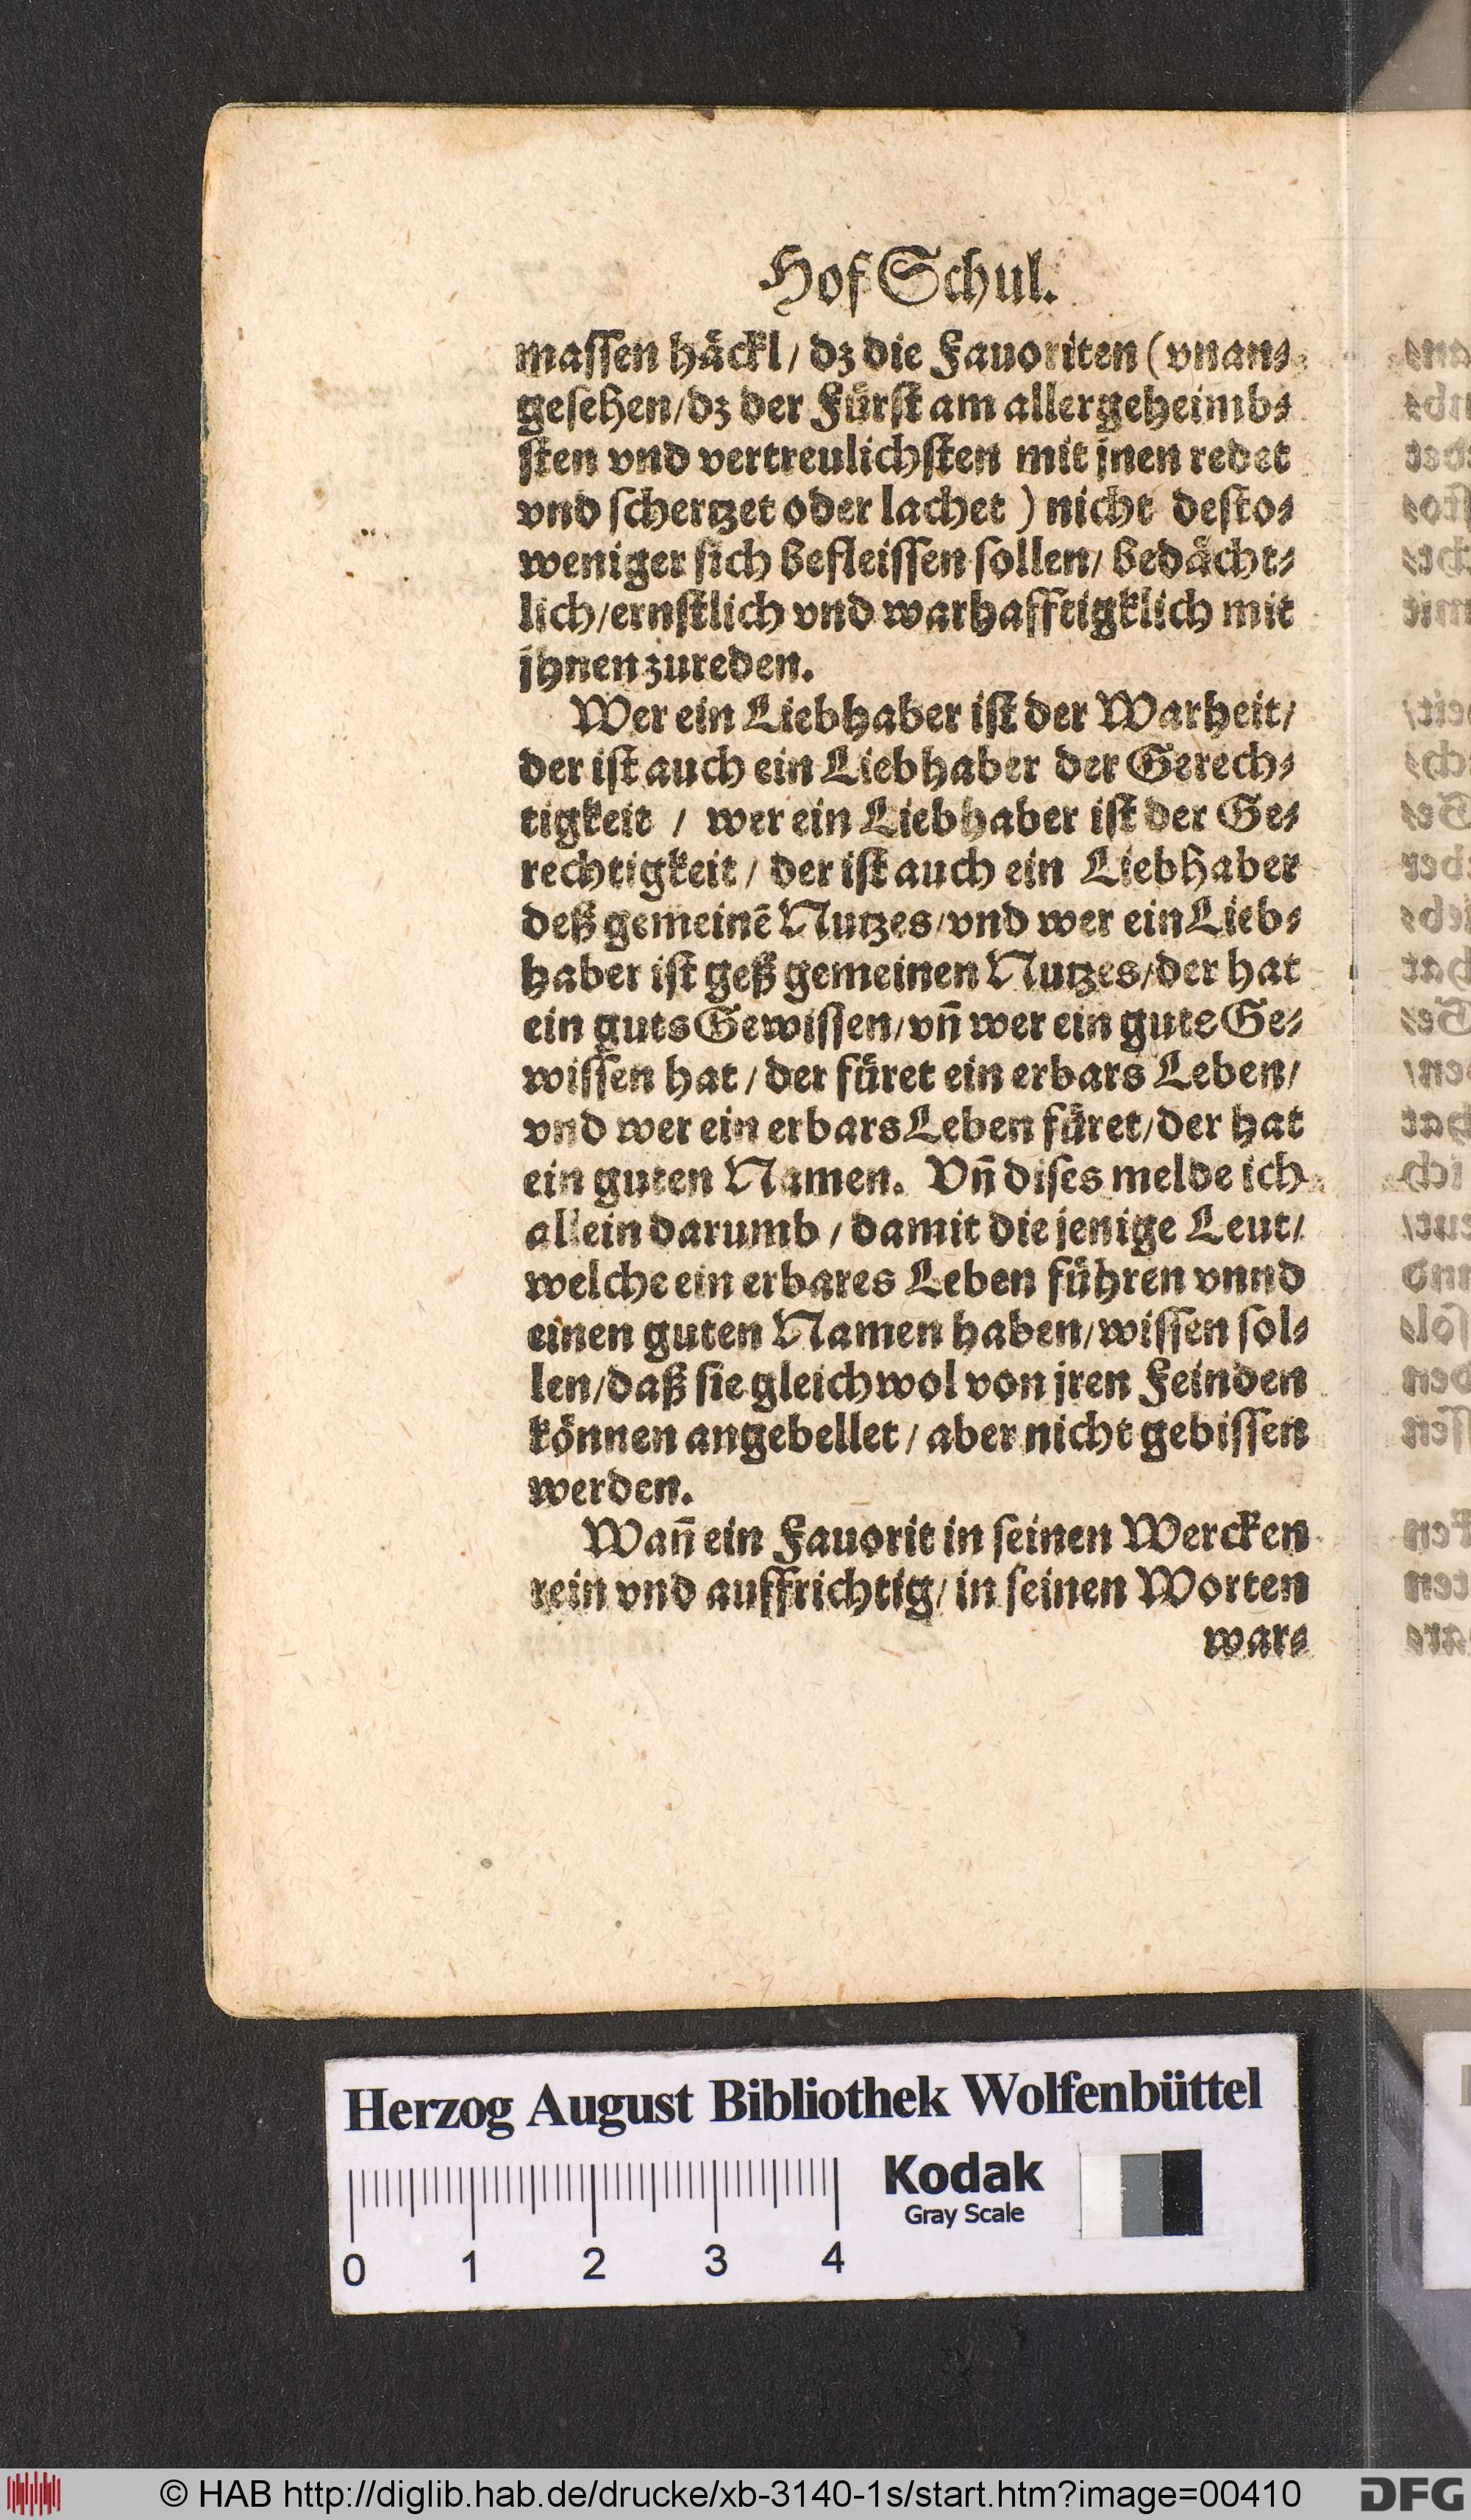 Hof Schul.
massen häckl / dz die Fauoriten (vnan-
gesehen/dz der Fürst am allergeheimb-
sten vnd vertreulichsten mit jnen redet
vnd schertzet oder lachet ) nicht desto-
weniger sich befleissen sollen/ bedächt-
lich/ernstlich vnd warhafftigklich mit
jhnen zureden.
Wer ein Liebhaber ist der Warheit/
der ist auch ein Liebhaber der Gerech-
tigkeit / wer ein Liebhaber ist der Ge-
rechtigkeit / der ist auch ein Liebhaber
deß gemeinē Nutzes/vnd wer ein Lieb-
haber ist geß gemeinen Nutzes/der hat
ein guts Gewissen/vn̄ wer ein gute Ge-
wissen hat / der füret ein erbars Leben/
vnd wer ein erbars Leben füret/der hat
ein guten Namen. Vn̄ dises melde ich
allein darumb / damit die jenige Leut/
welche ein erbares Leben führen vnnd
einen guten Namen haben/wissen sol-
len/daß sie gleichwol von jren Feinden
können angebellet / aber nicht gebissen
werden.
Wan̄ ein Fauorit in seinen Wercken
rein vnd auffrichtig/ in seinen Worten
war-
Herzog August Bibliothek Wolfenbüttel
Kodak
Gray Scale
0 1 2 3 4
© HAB http://diglib.hab.de/drucke/xb-3140-1s/start.htm?image=00410
DFG